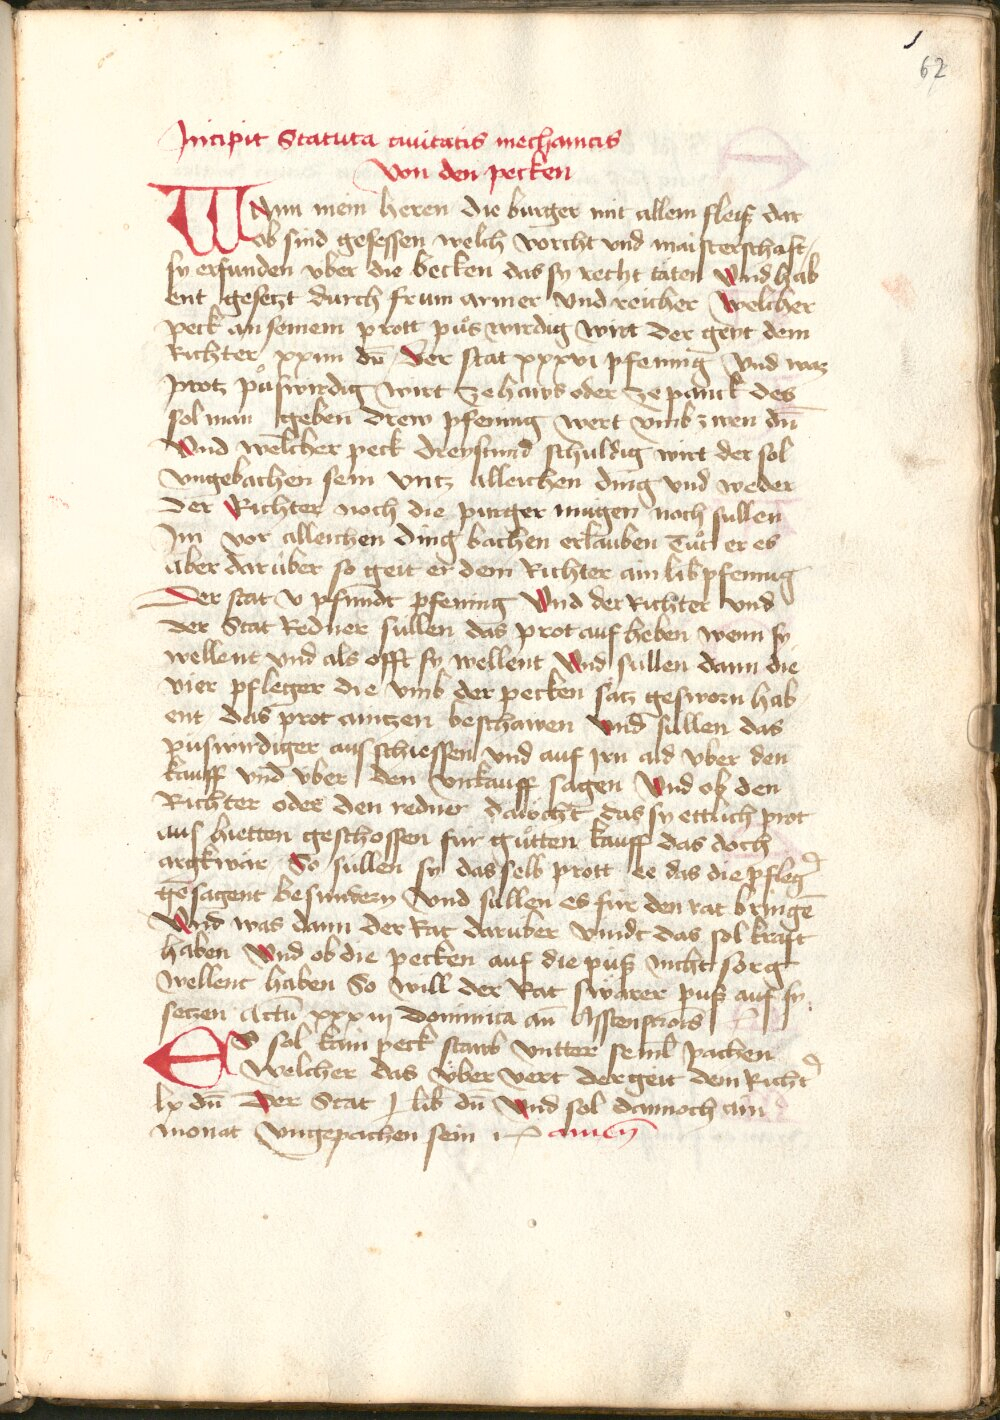 62
Incipit Statuta civitatis mechanicis
Von den pecken
Wann mein heren die burger mit allem fleiß dar
ob sind gesessen welch vorcht vnd maisterschaft
sy erfunden vber die becken das sy recht täten Vnd hab
ent gesetzt durch frum armer vnd reicher Welcher
peck an seinem prott půs wirdig wirt der geyt dem
Richter xxiiii dn̄ Der stat xxxvi pfening Vnd waz
protz půswirdig wirt ze haws oder ze panck des
sol man geben drew pfening wert vmb zwen dn̄
Vnd welcher peck dreystund schuldig wirt der sol
vngebachen sein vntz alleichen ding vnd weder
der Richter noch die purger mügen noch sullen
Im vor alleichen ding bachen erlauben Tůt er es
aber darüber so geit er dem Richter ain lib pfennig
Der stat v pfundt pfening Vnd der Richter vnd
der Stat Redner sullen das prot auf heben wenn sy
wellent vnd als offt sy wellent Vnd sullen dann die
vier pfleger die vmb der pecken satz gesworn hab
ent das prot aintzen beschawen Vnd sullen das
püswirdiger aus schiessen vnd auf irn aid vber den
kauff vnd vber den vnkauff sagen Vnd ob den
Richter oder den redner dawcht das sy ettlich prot
aus hietten geschossen für gůtten kauff das doch
argk wär So sullen sy das selb prott ee das die pfleg̉
gesagent besundern Vnd sullen es für den rat bringē
Vnd was dann der Rat darüber vindt das sol kraft
haben Vnd ob die pecken auf die půß nicht sorg
wellent haben So will der Rat swärer půß auf sy
setzen Actū xxxiij Dominica an̄ Asscensionis
Es sol kain peck staub vntter seml pachen
Welcher das über vert der geit dem Richt̉
lx dn̄ Der Stat j lib dn̄ Vnd sol dannoch ain
monat vngepachen sein amen